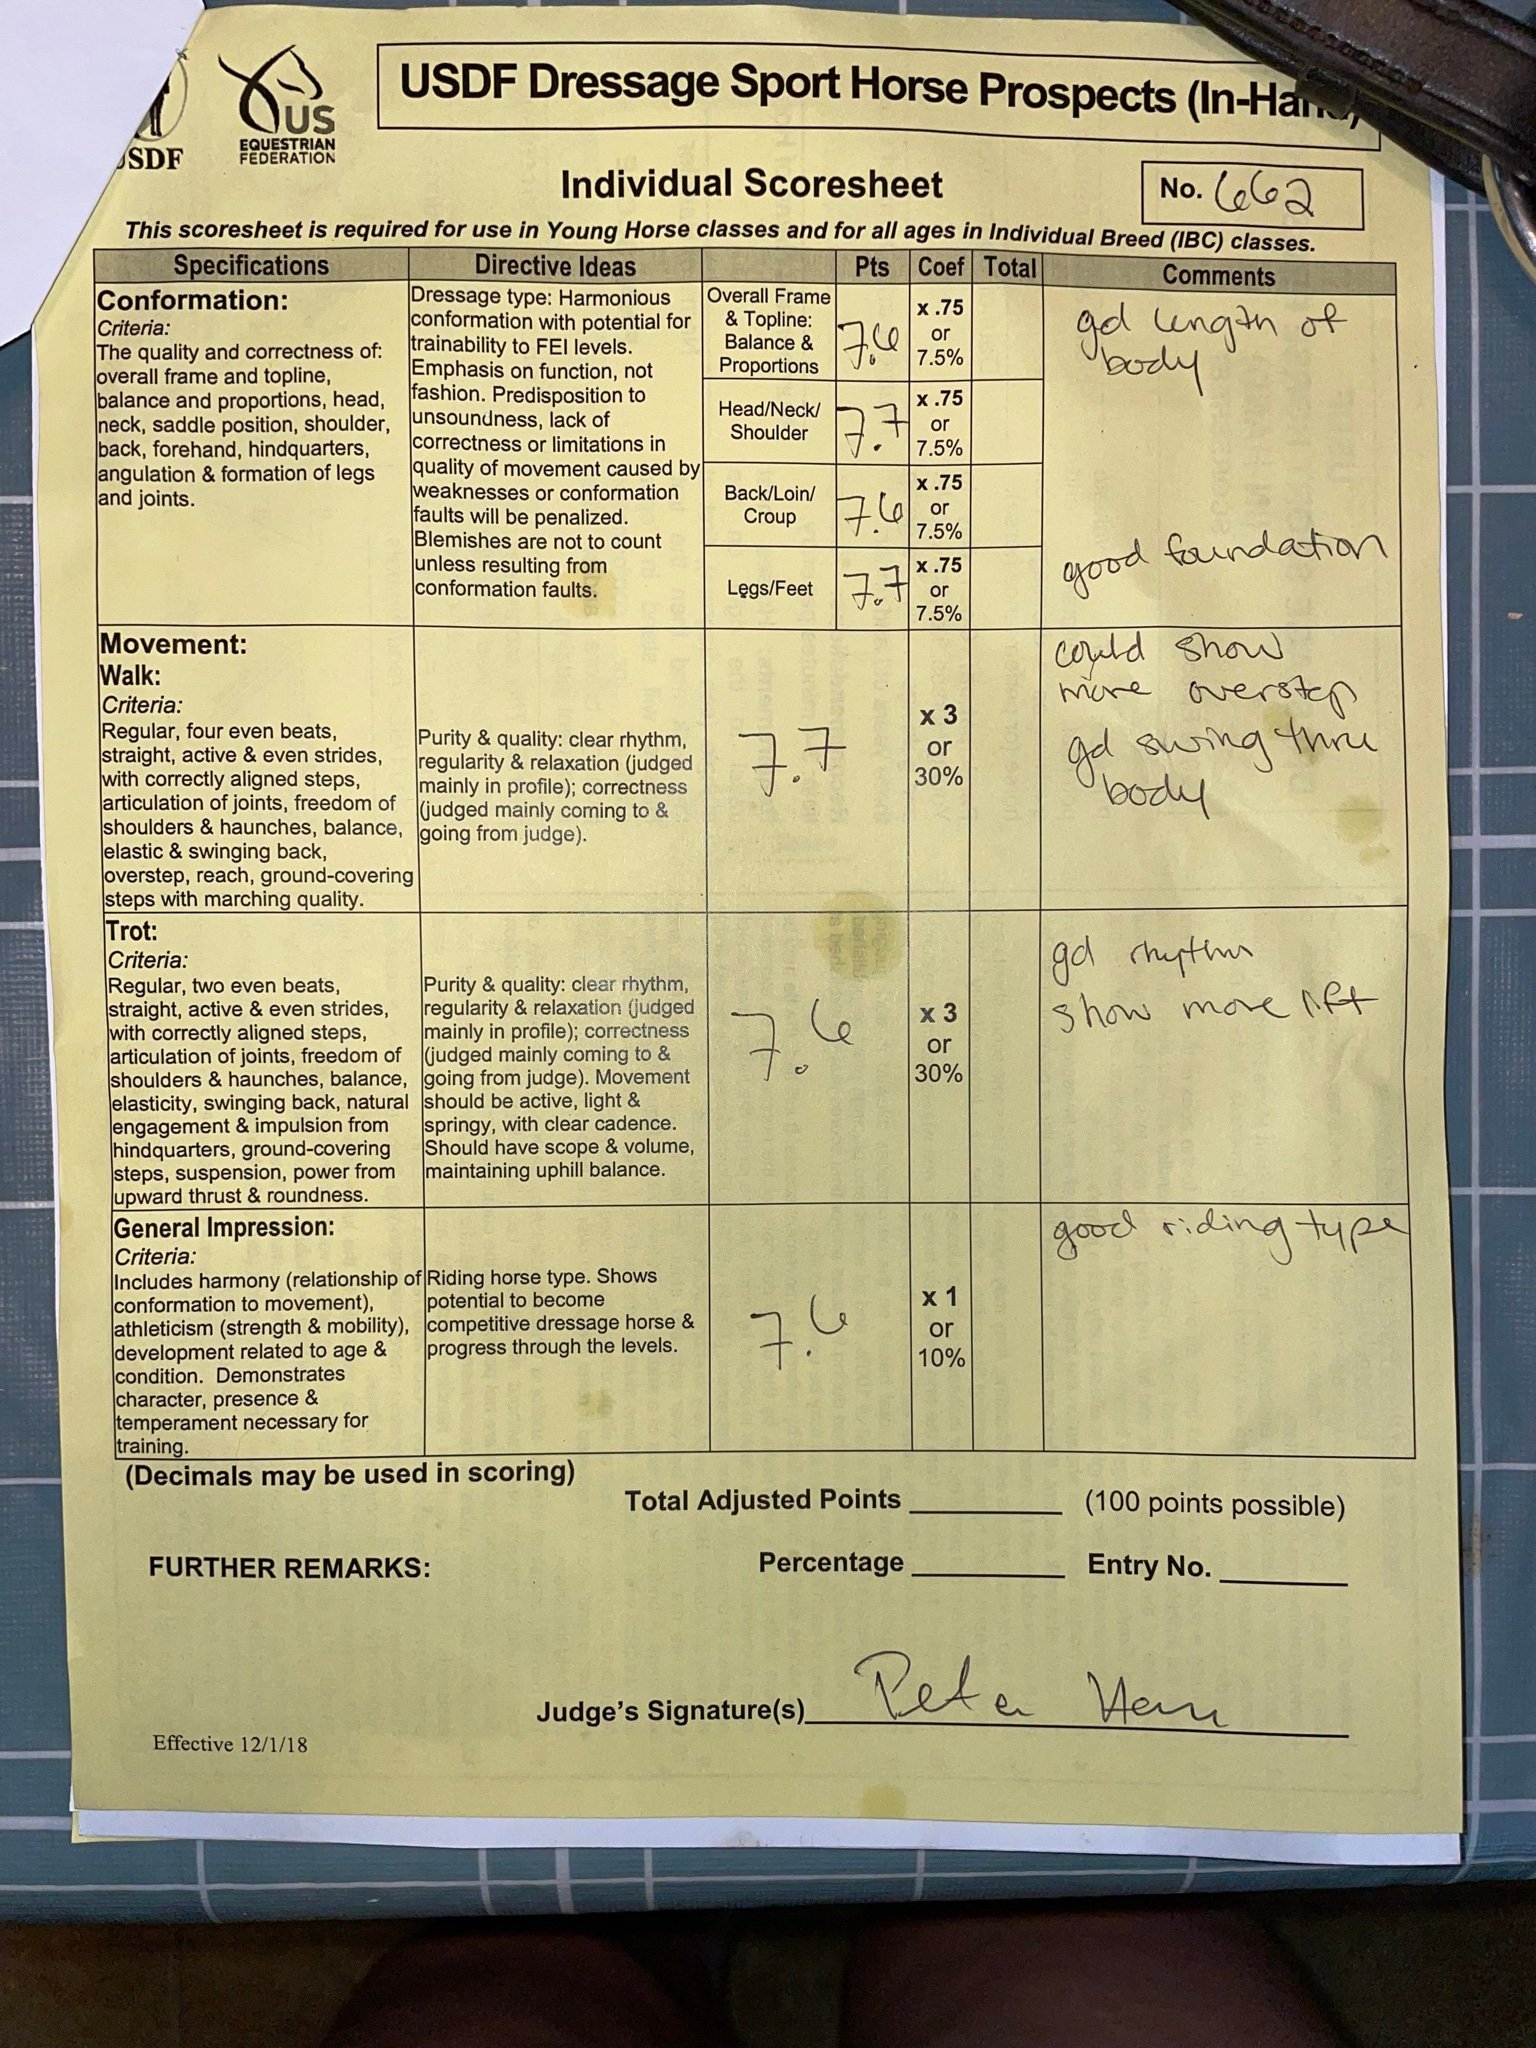 USDF
US
EQUESTRIAN
FEDERATION
USDF Dressage Sport Horse Prospects (In-Hand)
Individual Scoresheet
No. 662
This scoresheet is required for use in Young Horse classes and for all ages in Individual Breed (IBC) classes.
Specifications Directive Ideas Pts Coef Total Comments
Conformation:
Criteria:
The quality and correctness of:
overall frame and topline,
balance and proportions, head,
neck, saddle position, shoulder,
back, forehand, hindquarters,
angulation & formation of legs
and joints.
Dressage type: Harmonious
conformation with potential for
trainability to FEI levels.
Emphasis on function, not
fashion. Predisposition to
unsoundness, lack of
correctness or limitations in
quality of movement caused by
weaknesses or conformation
faults will be penalized.
Blemishes are not to count
unless resulting from
conformation faults.
Overall Frame
& Topline:
Balance &
Proportions
7.6
x .75
or
7.5%
gd length of
body
Head/Neck/
Shoulder
7.7
x .75
or
7.5%
Back/Loin/
Croup
7.6
x .75
or
7.5%
Legs/Feet
7.7
x .75
or
7.5%
good foundation
Movement:
Walk:
Criteria:
Regular, four even beats,
straight, active & even strides,
with correctly aligned steps,
articulation of joints, freedom of
shoulders & haunches, balance,
elastic & swinging back,
overstep, reach, ground-covering
steps with marching quality.
Purity & quality: clear rhythm,
regularity & relaxation (judged
mainly in profile); correctness
(judged mainly coming to &
going from judge).
7.7
x 3
or
30%
could show
more overstep
gd swing thru
body
Trot:
Criteria:
Regular, two even beats,
straight, active & even strides,
with correctly aligned steps,
articulation of joints, freedom of
shoulders & haunches, balance,
elasticity, swinging back, natural
engagement & impulsion from
hindquarters, ground-covering
steps, suspension, power from
upward thrust & roundness.
Purity & quality: clear rhythm,
regularity & relaxation (judged
mainly in profile); correctness
(judged mainly coming to &
going from judge). Movement
should be active, light &
springy, with clear cadence.
Should have scope & volume,
maintaining uphill balance.
7.6
x 3
or
30%
gd rhythm
show more lift
General Impression:
Criteria:
Includes harmony (relationship of
conformation to movement),
athleticism (strength & mobility),
development related to age &
condition. Demonstrates
character, presence &
temperament necessary for
training.
Riding horse type. Shows
potential to become
competitive dressage horse &
progress through the levels.
7.6
x 1
or
10%
good riding type
(Decimals may be used in scoring)
Total Adjusted Points (100 points possible)
FURTHER REMARKS:
Percentage Entry No.
Judge's Signature(s) Peter
Effective 12/1/18